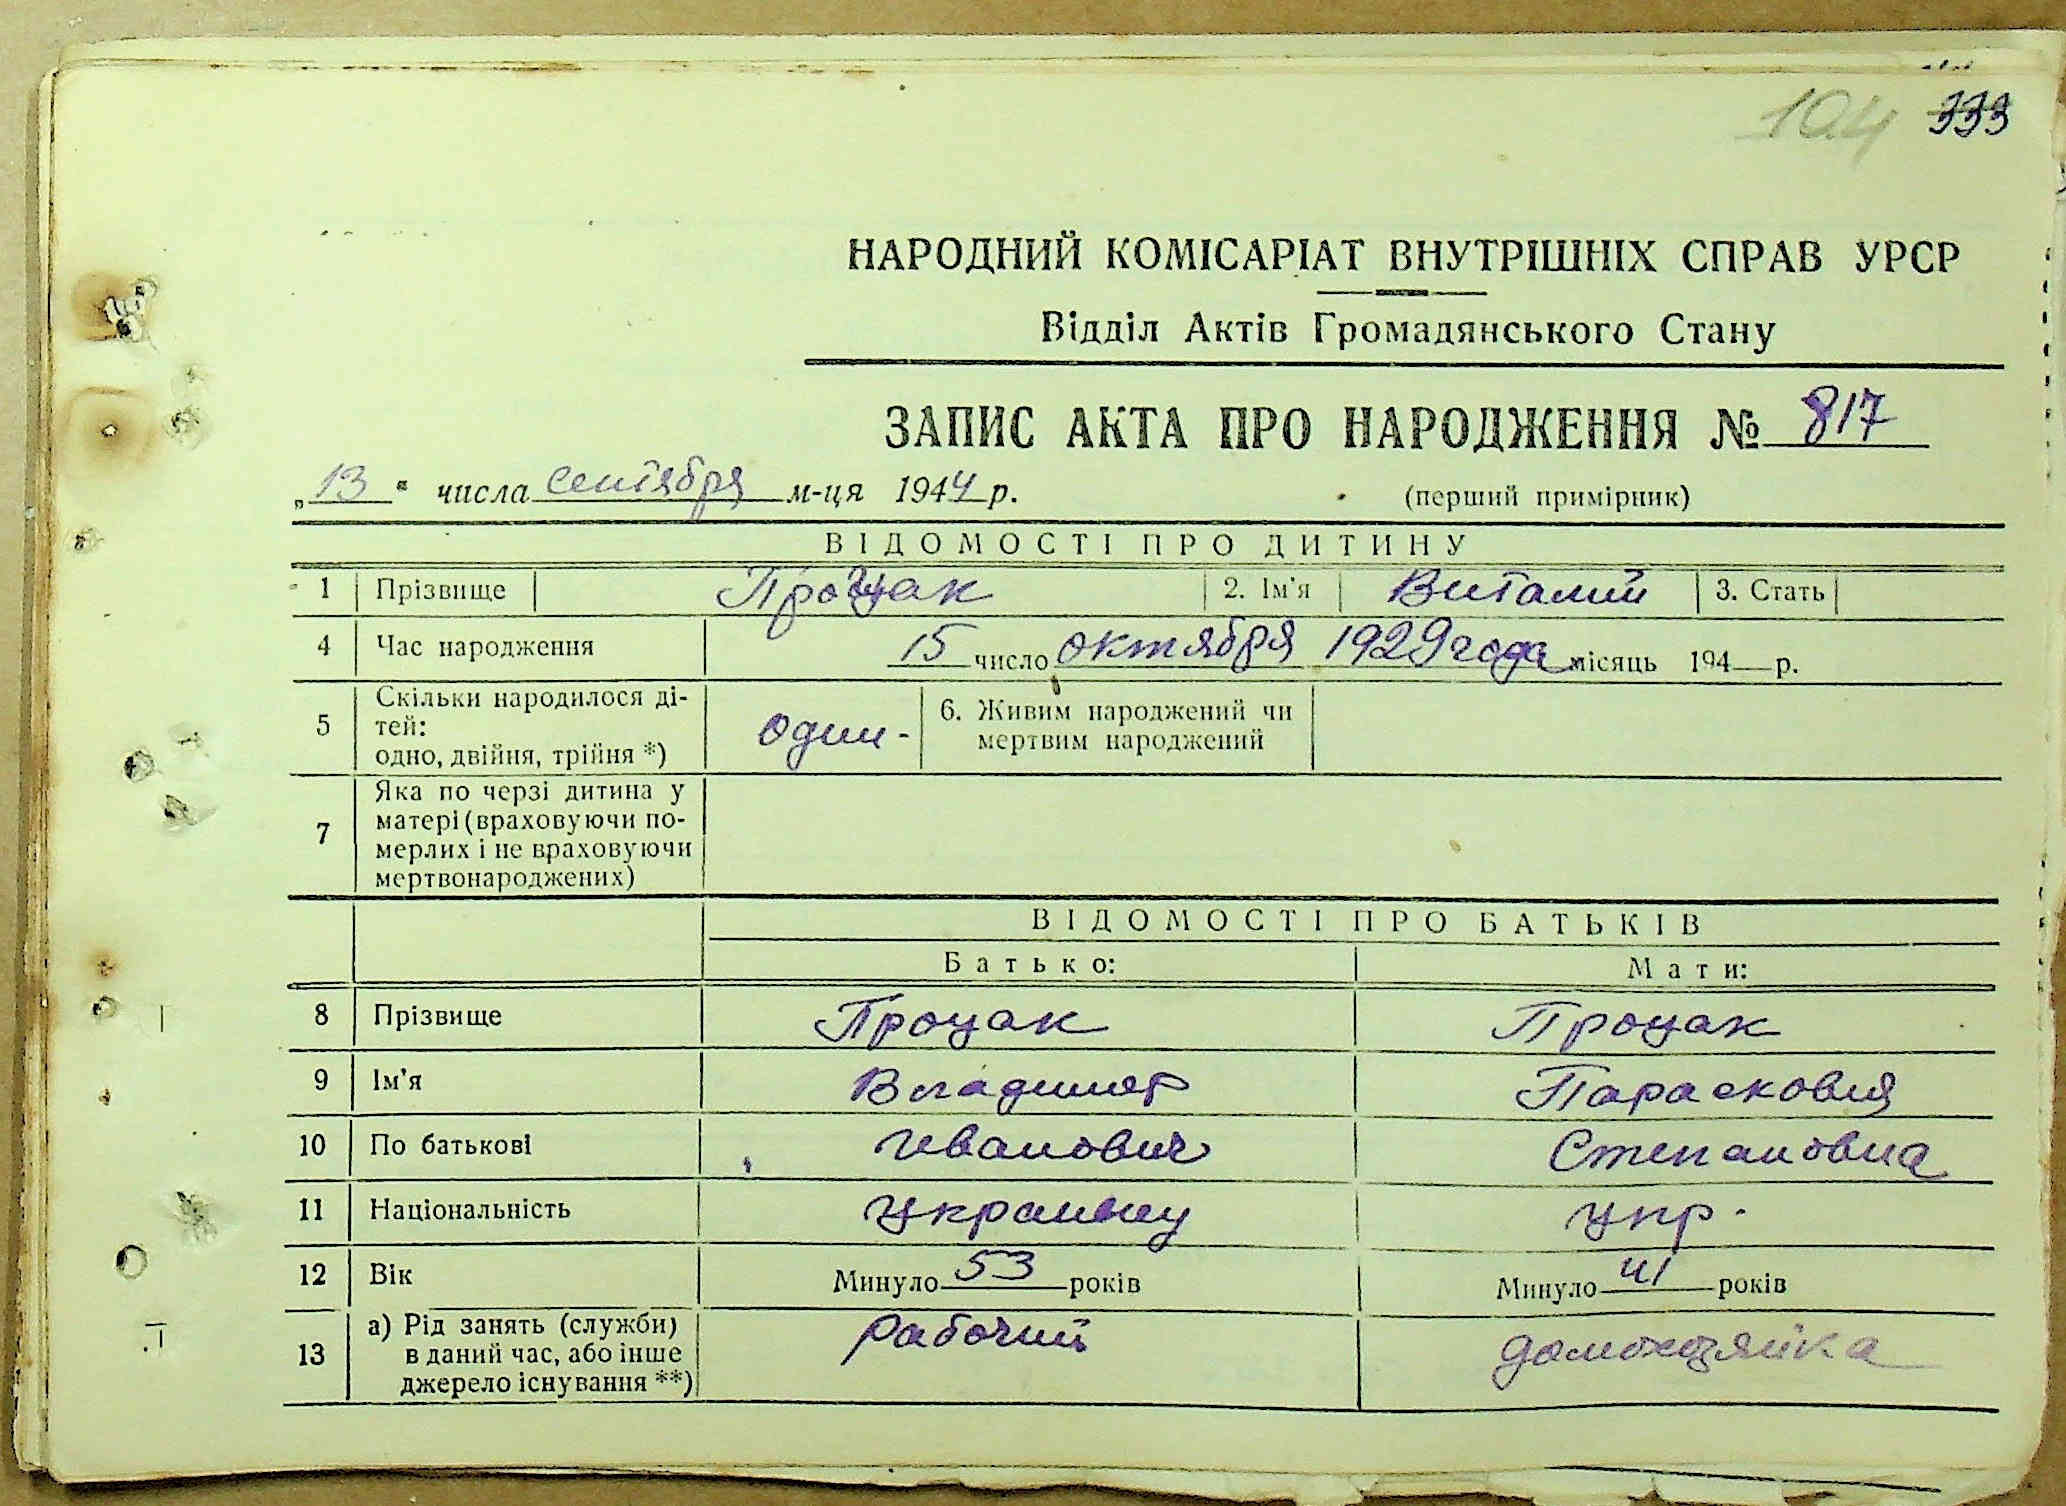 104 333
НАРОДНИЙ КОМІСАРІАТ ВНУТРІШНІХ СПРАВ УРСР
Відділ Актів Громадянського Стану
ЗАПИС АКТА ПРО НАРОДЖЕННЯ № 817
„13“ числа сентября м-ця 1944 р. (перший примірник)
ВІДОМОСТІ ПРО ДИТИНУ
1 Прізвище Процак 2. Ім'я Виталий 3. Стать
4 Час народження 15 число октября 1929 года місяць 194 р.
5 Скільки народилося ді-
тей:
одно, двійня, трійня *) один - 6. Живим народжений чи
мертвим народжений
7 Яка по черзі дитина у
матері (враховуючи по-
мерлих і не враховуючи
мертвонароджених)
ВІДОМОСТІ ПРО БАТЬКІВ
Батько: Мати:
8 Прізвище Процак Процак
9 Ім'я Владимир Парасковия
10 По батькові Иванович Степановна
11 Національність Украинец укр.
12 Вік Минуло 53 років Минуло 41 років
13 а) Рід занять (служби) Рабочий домохозяйка
в даний час, або інше
джерело існування **)